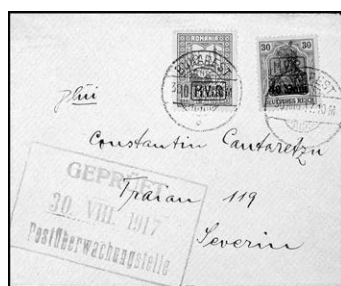 ROMANIA
30
30
M.V.i.R.
DEUTSCHES REICH
BUKAREST
Constantin Cantaretzu
Traian 119
Severin
GEPRÜFT
30. VIII. 1917
Postüberwachungstelle